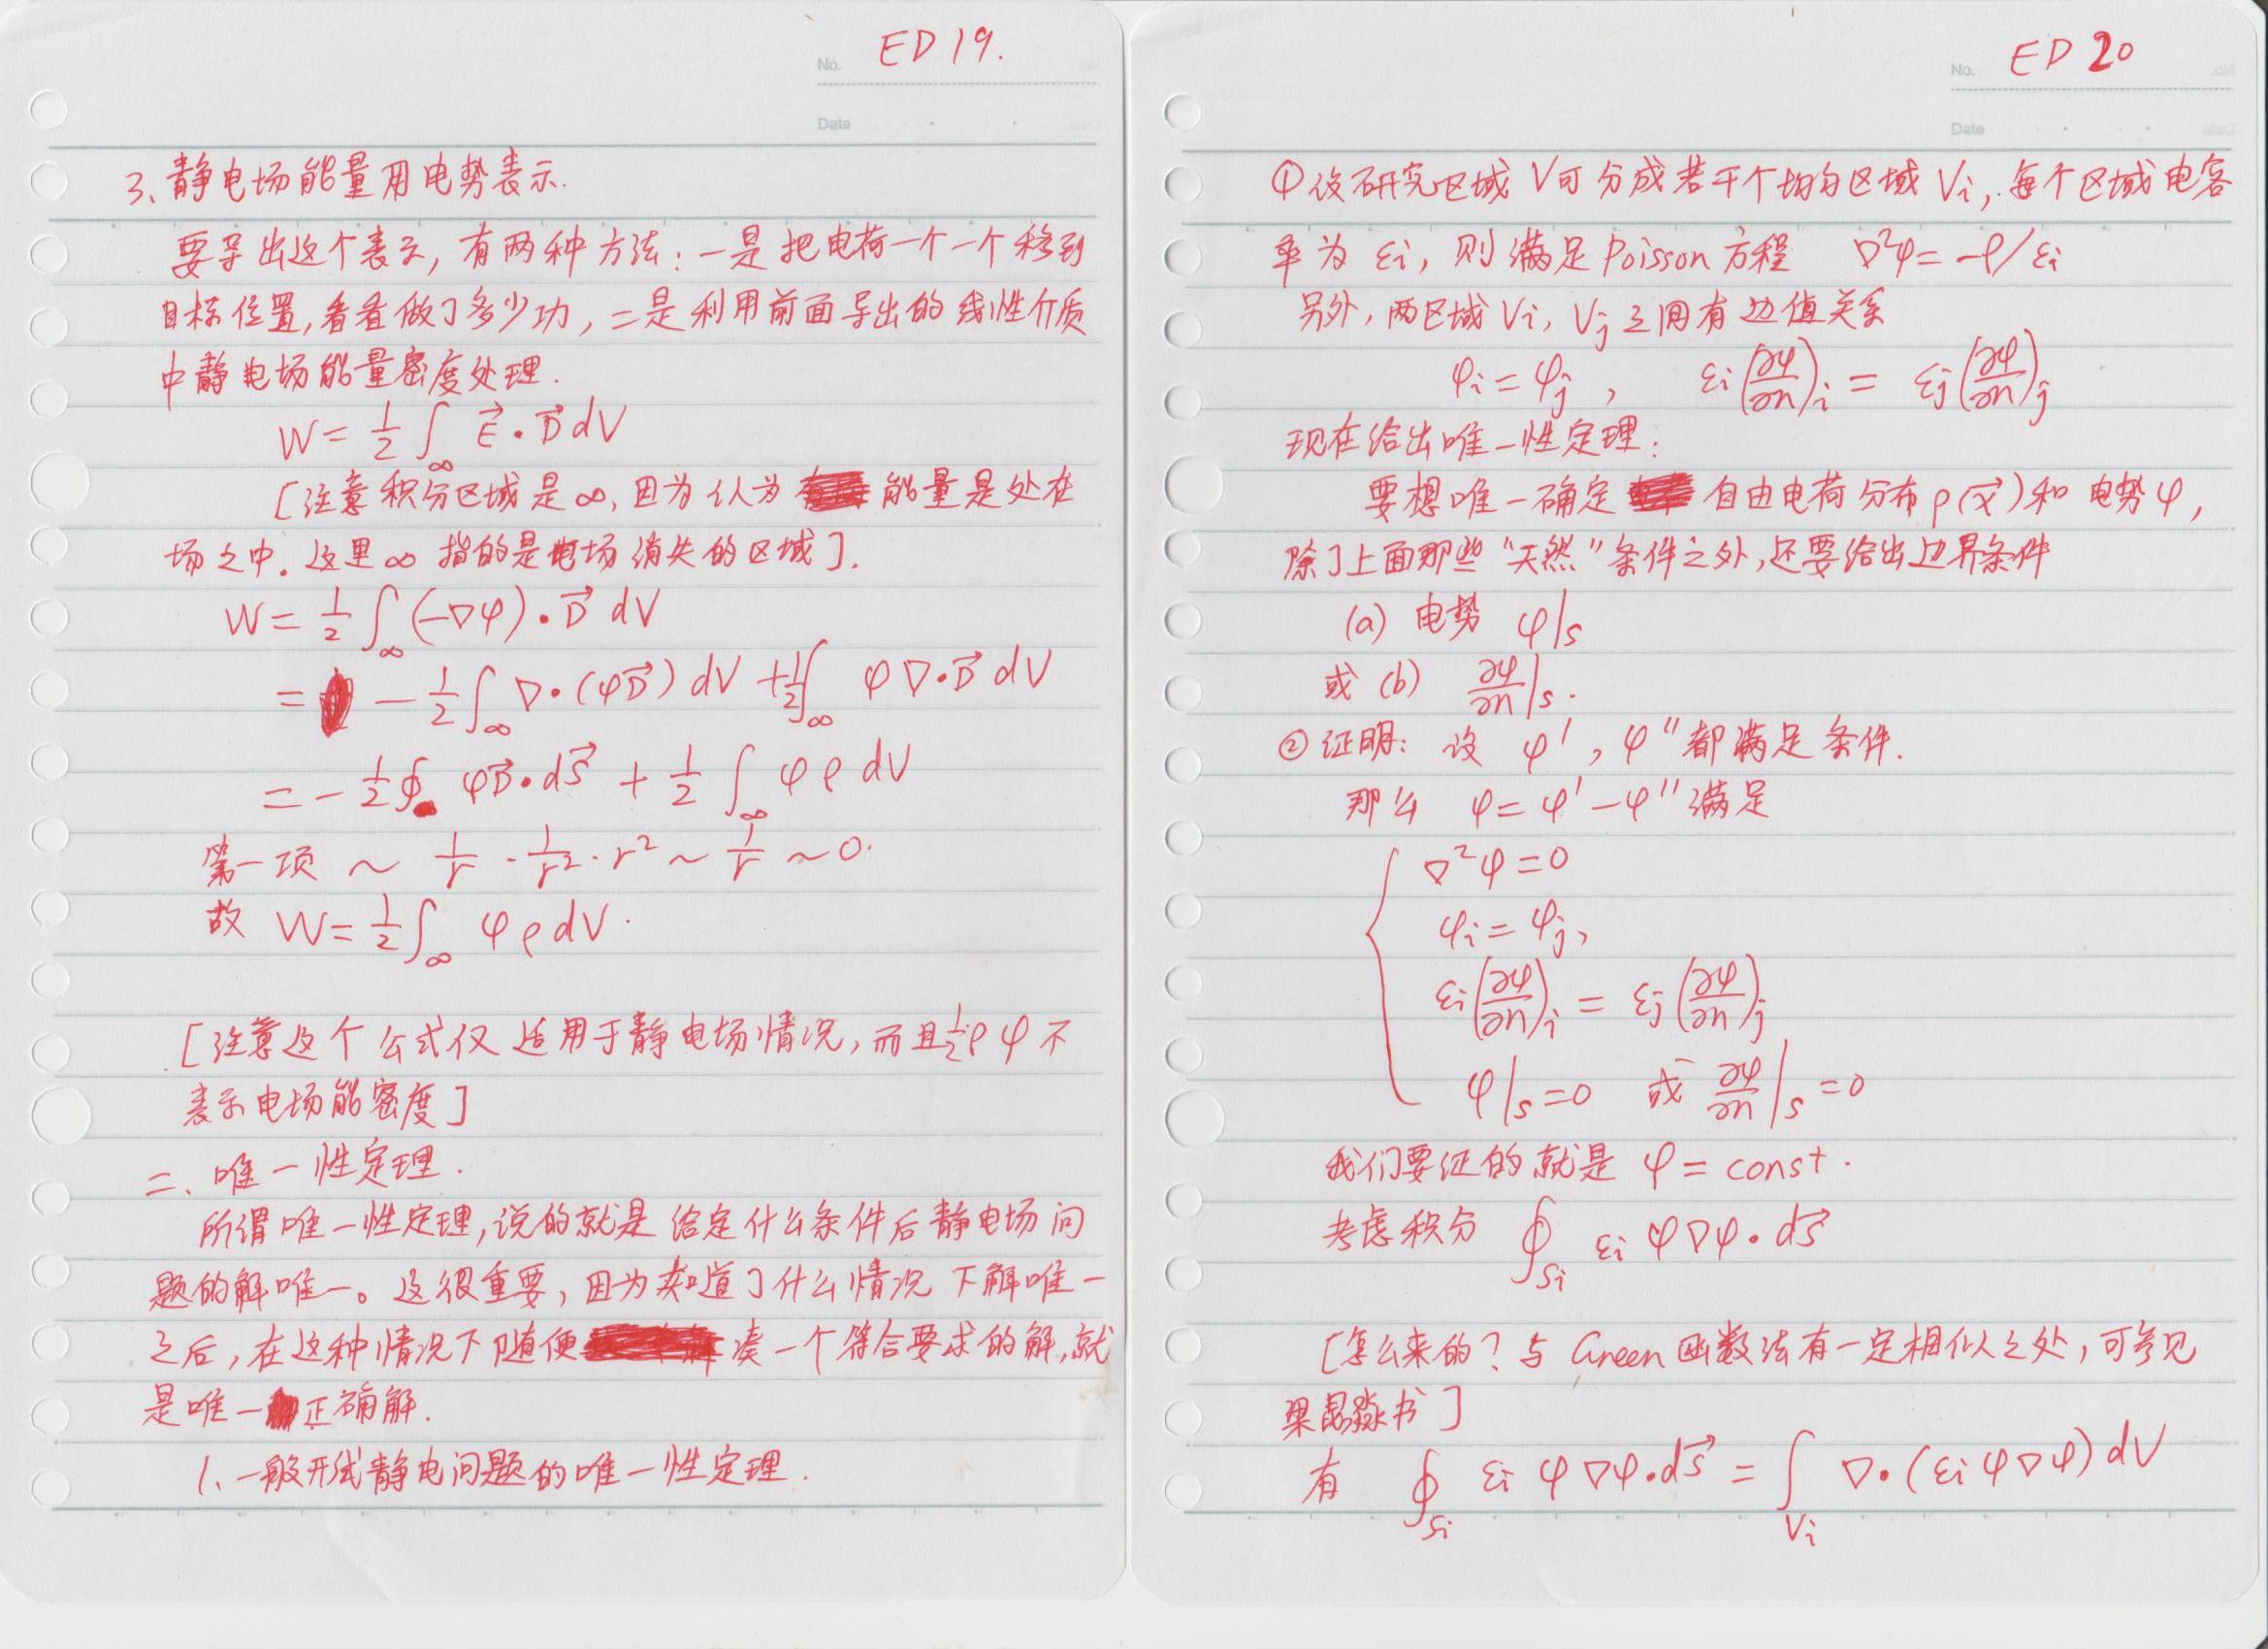 No. ED 19.
Date
3、静电场能量用电势表示.
要导出这个表示, 有两种方法: 一是把电荷一个一个移到
目标位置, 看看做了多少功, 二是利用前面导出的线性介质
中静电场能量密度处理.
W = 1/2 ∫_∞ E⃗·D⃗ dV
[注意积分区域是∞, 因为认为 能量是处在
场之中. 这里∞指的是电场消失的区域].
W = 1/2 ∫_∞ (-∇φ)·D⃗ dV
= -1/2 ∫_∞ ∇·(φD⃗) dV + 1/2 ∫_∞ φ∇·D⃗ dV
= -1/2 ∮ φD⃗·dS⃗ + 1/2 ∫_∞ φρ dV
第一项 ~ 1/r · 1/r² · r² ~ 1/r ~ 0.
故 W = 1/2 ∫_∞ φρ dV.
[注意这个公式仅适用于静电场情况, 而且1/2 ρφ不
表示电场能密度]
二、唯一性定理.
所谓唯一性定理, 说的就是给定什么条件后静电场问
题的解唯一。这很重要, 因为知道了什么情况下解唯一
之后, 在这种情况下随便 凑一个符合要求的解, 就
是唯一正确解.
1、一般形式静电问题的唯一性定理.
No. ED 20
Date
①设研究区域V可分成若干个均匀区域Vi, 每个区域电容
率为εi, 则满足Poisson方程 ∇²φ = -ρ/εi
另外, 两区域Vi, Vj之间有边值关系
φi = φj , εi(∂φ/∂n)i = εj(∂φ/∂n)j
现在给出唯一性定理:
要想唯一确定 自由电荷分布ρ(x⃗)和电势φ,
除了上面那些"天然"条件之外, 还要给出边界条件
(a) 电势 φ|s
或 (b) ∂φ/∂n|s.
②证明: 设 φ', φ''都满足条件.
那么 φ = φ' - φ''满足
∇²φ = 0
φi = φj,
εi(∂φ/∂n)i = εj(∂φ/∂n)j
φ|s = 0 或 ∂φ/∂n|s = 0
我们要证的就是 φ = const.
考虑积分 ∮_Si εi φ∇φ·dS⃗
[怎么来的? 与Green函数法有一定相似之处, 可参见
梁昆淼书]
有 ∮_Si εi φ∇φ·dS⃗ = ∫_Vi ∇·(εi φ∇φ) dV